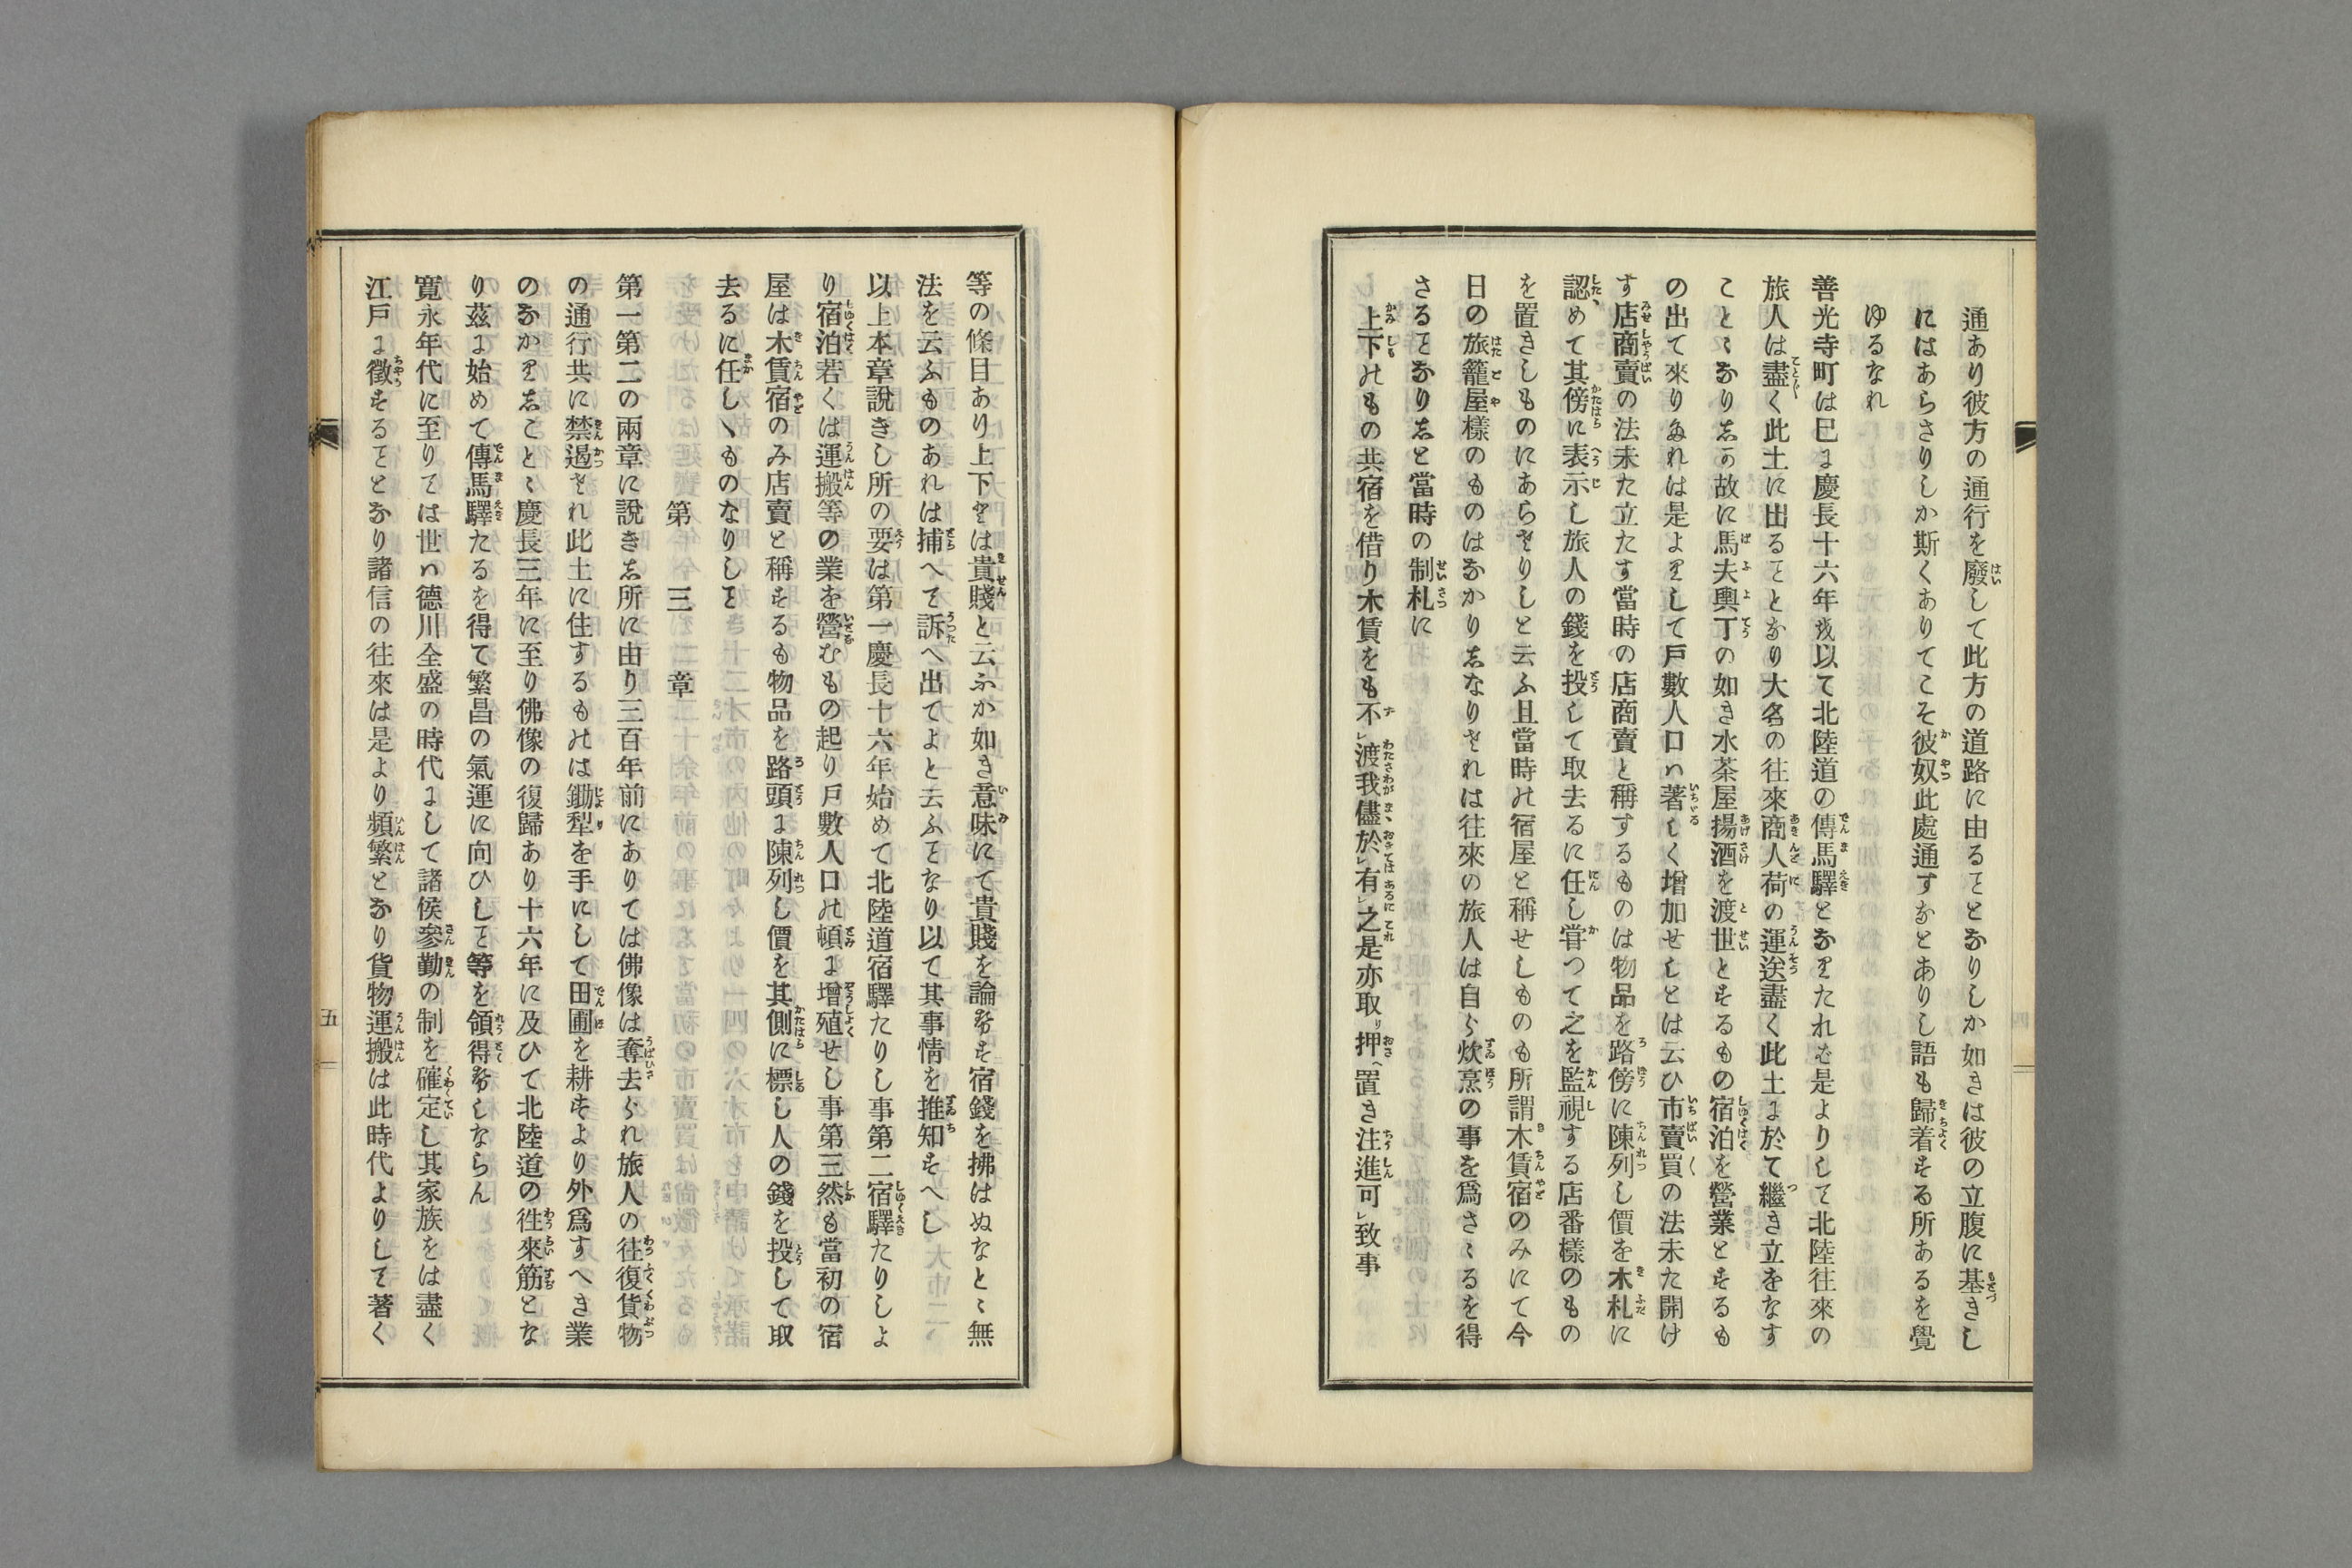 通あり彼方の通行を廢して此方の道路に由るヿとなりしか如きは彼の立腹に基きし
にはあらさりしか斯くありてこそ彼奴此處通すなとありし語も歸着する所あるを覺
ゆるなれ
善光寺町は已に慶長十六年を以て北陸道の傳馬驛となりたれは是よりして北陸往來の
旅人は盡く此土に出るヿとなり大名の往來商人荷の運送盡く此土に於て繼き立をなす
ことゝなりしか故に馬夫輿丁の如き水茶屋揚酒を渡世とするもの宿泊を營業とするも
の出て來りたれは是よりして戶數人口の著しく增加せしとは云ひ市賣買の法未た開け
す店商賣の法未た立たす當時の店商賣と稱するものは物品を路傍に陳列し價を木札に
認、めて其傍に表示し旅人の錢を投して取去るに任し甞つて之を監視する店番樣のもの
を置きしものにあらさりしと云ふ且當時の宿屋と稱せしものも所謂木賃宿のみにて今
日の旅籠屋樣のものはなかりしなりされは往來の旅人は自ら炊烹の事を爲さゝるを得
さるヿなりしと當時の制札に
上下のもの共宿を借り木賃をも不レ渡我儘於レ有レ之是亦取リ押ヘ置き注進可レ致事
等の條目あり上下とは貴賤と云ふか如き意味にて貴賤を論せす宿錢を拂はぬなとゝ無
法を云ふものあれは捕へて訴へ出てよと云ふヿなり以て其事情を推知すへし
以上本章說きし所の要は第一慶長十六年始めて北陸道宿驛たりし事第二宿驛たりしよ
り宿泊若くは運搬等の業を營むもの起り戶數人口の頓に增殖せし事第三然も當初の宿
屋は木賃宿のみ店賣と稱するも物品を路頭に陳列し價を其側に標し人の錢を投して取
去るに任しゝものなりしヿ
第三章
第一第二の兩章に說きし所に由り三百年前にありては佛像は奪去られ旅人の往復貨物
の通行共に禁遏され此土に住するものは鋤犁を手にして田圃を耕すより外爲すへき業
のなかりしことゝ慶長三年に至り佛像の復歸あり十六年に及ひて北陸道の徃來筋とな
り茲に始めて傳馬驛たるを得て繁昌の氣運に向ひしヿ等を領得せしならん
寬永年代に至りては世は德川全盛の時代にして諸侯參勤の制を確定し其家族をは盡く
江戶に徵するヿとなり諸信の往來は是より頻繁となり貨物運搬は此時代よりして著く
五